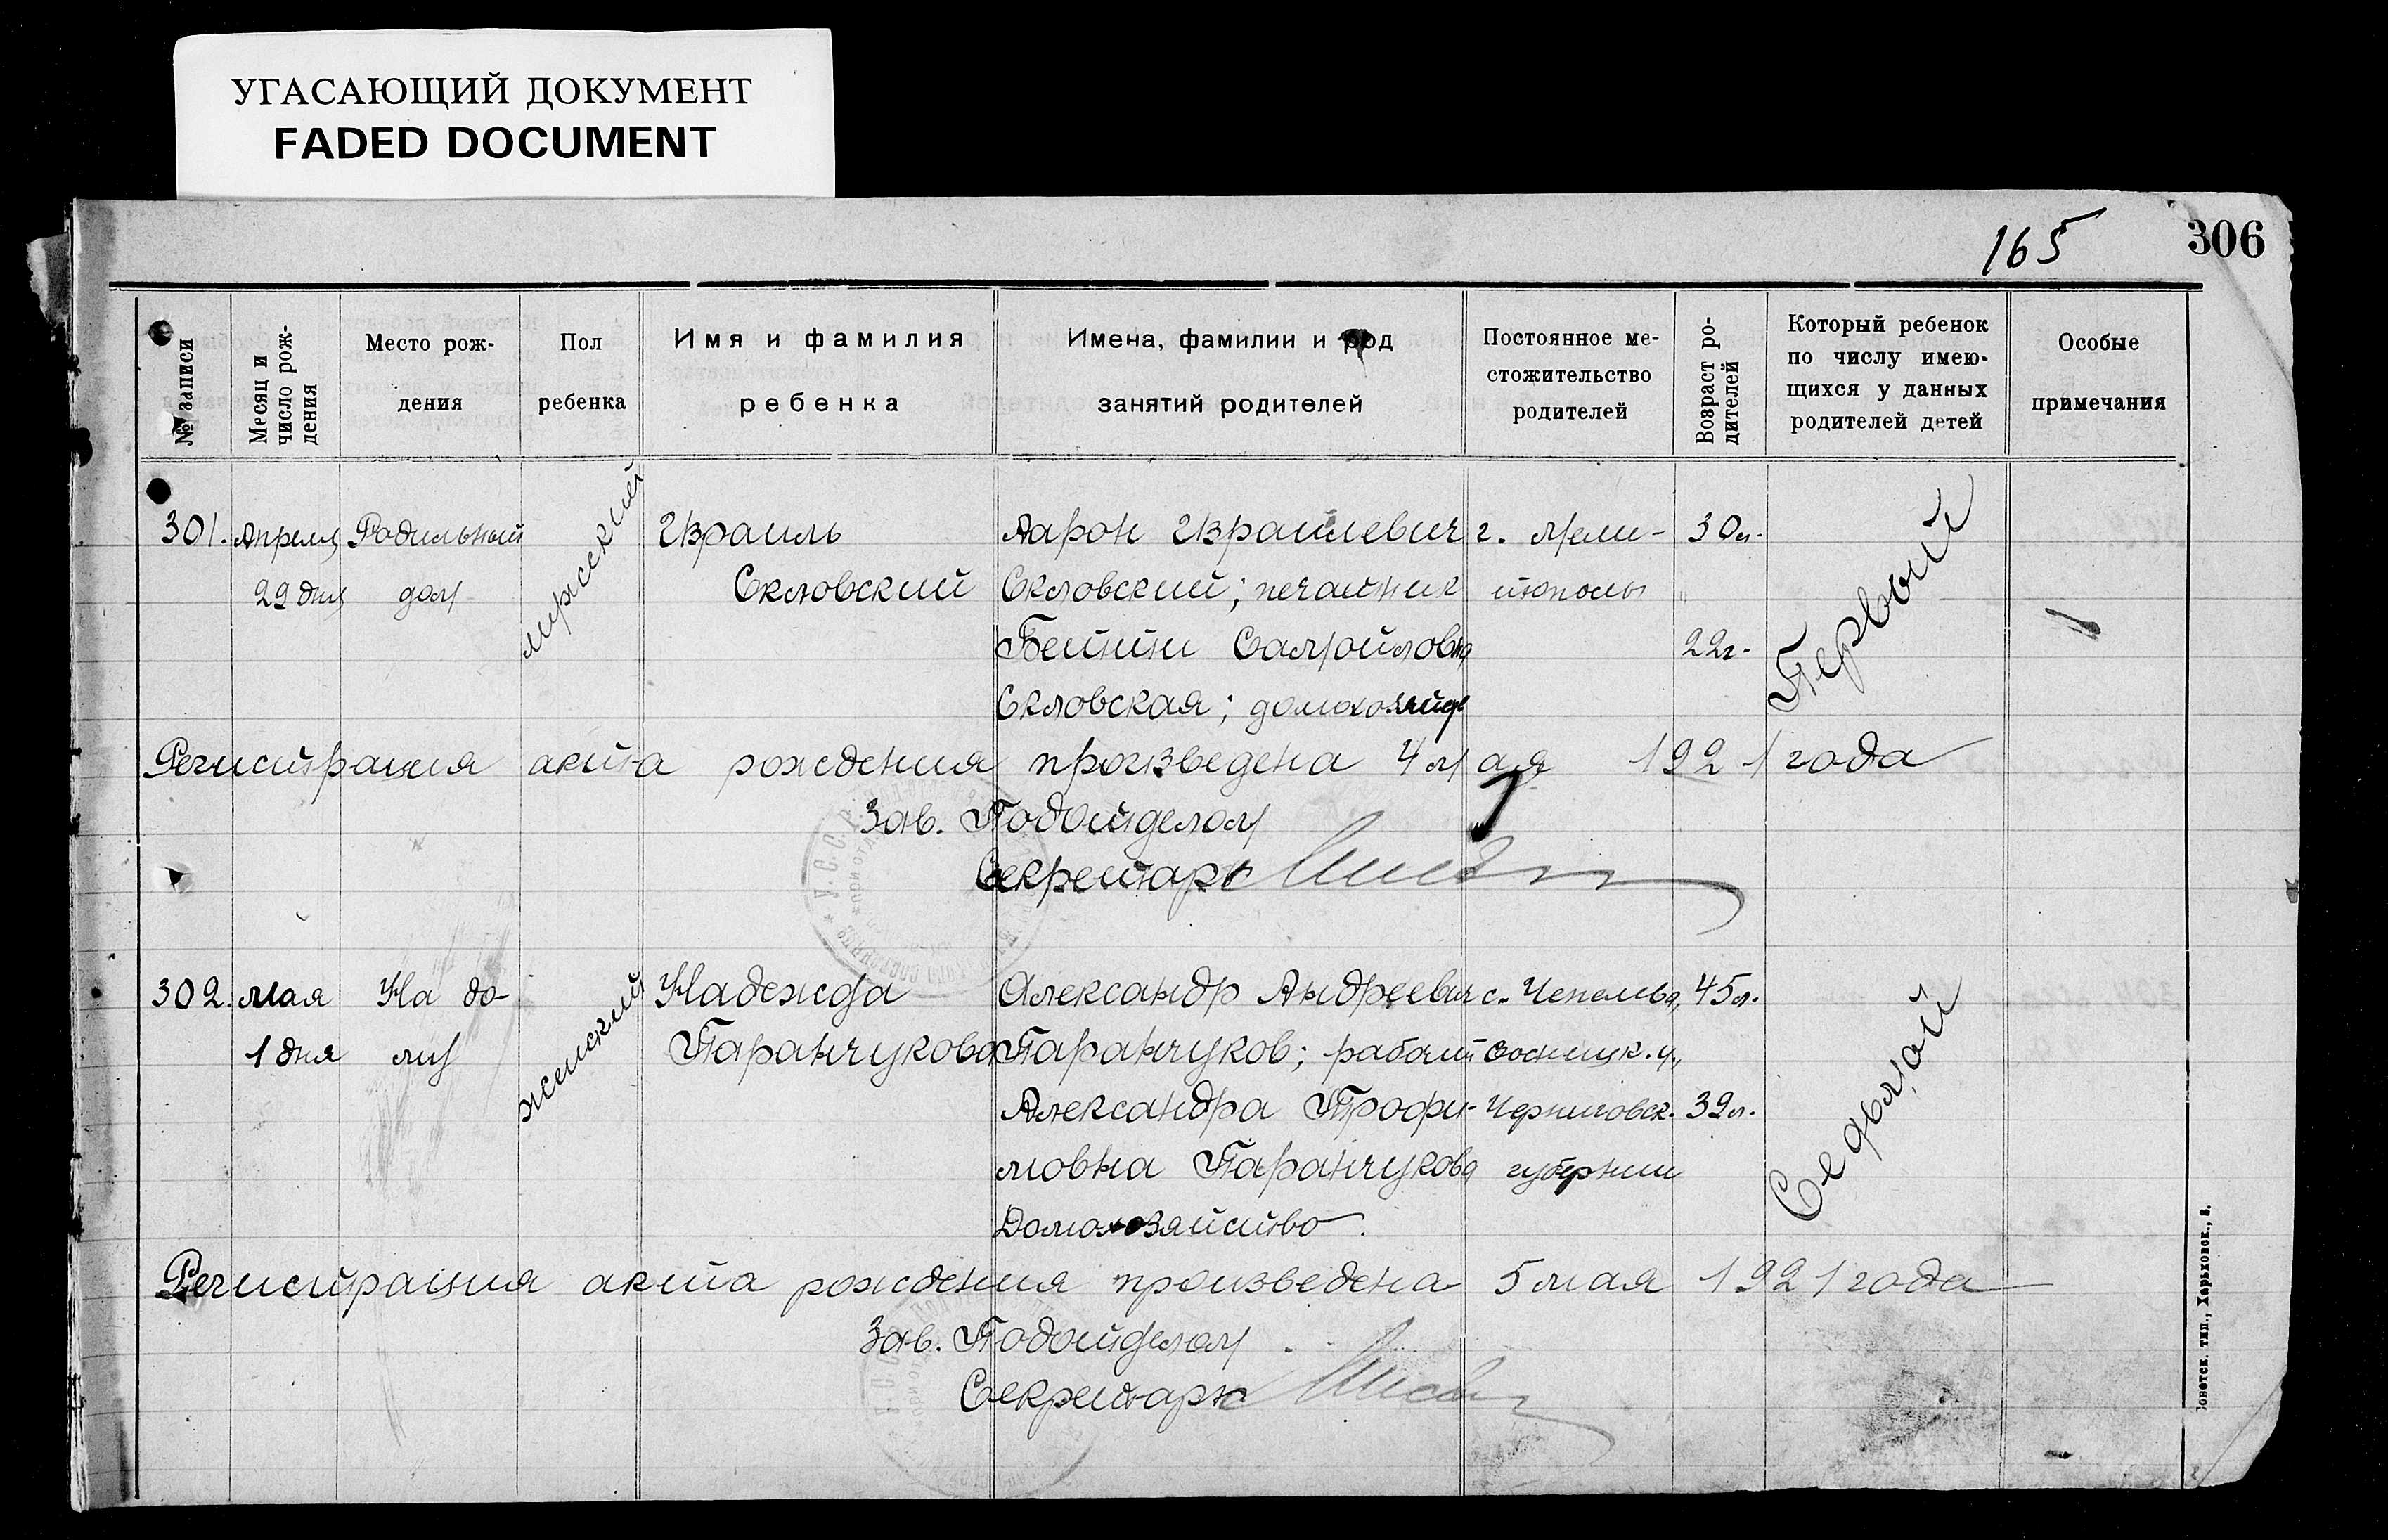 УГАСАЮЩИЙ ДОКУМЕНТ
FADED DOCUMENT
165
306
№ записи
Месяц и число рож-дения
Место рож-
дения
Пол
ребенка
Имя и фамилия
ребенка
Имена, фамилии и род
занятий родителей
Постоянное ме-
стожительство
родителей
Возраст ро-
дителей
Который ребенок
по числу имею-
щихся у данных
родителей детей
Особые
примечания
301. Апреля Родильный мужской Израиль Аарон Израилевич г. Мели- 30 л. Первый
29 дня дом Скловский Скловский; печатник тополь
Самойловна 22 г.
Скловская;
Регистрация акта рождения произведена 4 мая 1921 года
Зав. Подотделом
Секретарь
302. Мая На до- женский Надежда Александр Андреевич с. 45 л. Седьмой
1 дня му Паранчукова Паранчуков; Сосницк. у.,
Александра Трофи- Черниговск. 39 л.
мовна Паранчукова губернии
Домохозяйство.
Регистрация акта рождения произведена 5 мая 1921 года
Зав. Подотделом
Секретарь
Советск. тип., Харьковск., 8.